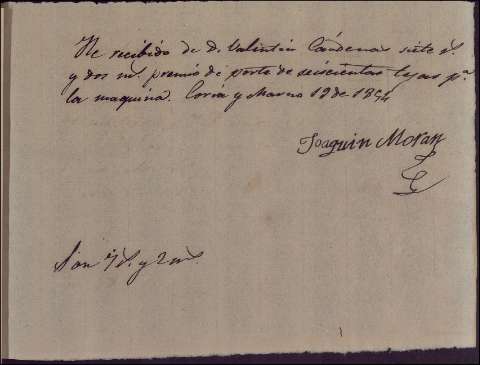 He recibido de D. Valentin Cárdenas siete r.s
y dos m.s premio de porte de seiscientas tejas p.a
la maquina. Coria y Marzo 19 de 1854
Joaquin Moran
Son 7 r.s y 2 m.s